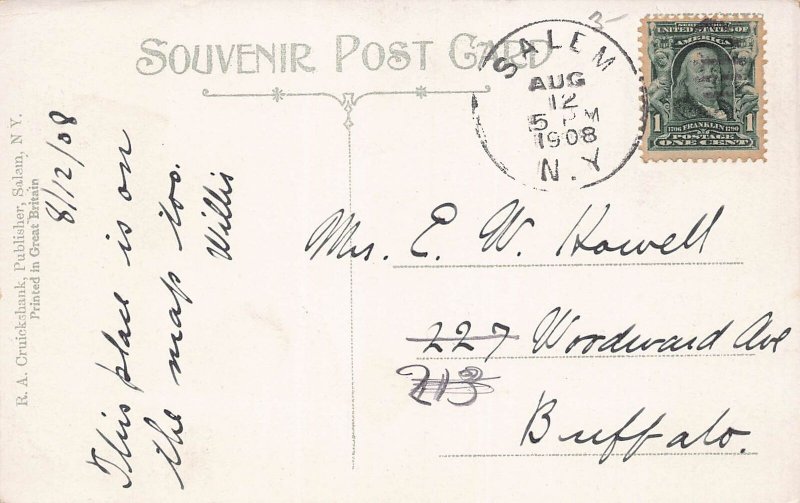 SOUVENIR POST CARD
SALEM
AUG
12
5 PM
1908
N.Y.
SERIES 1902
UNITED STATES OF
AMERICA
1 1706 FRANKLIN 1790 1
POSTAGE
ONE CENT
R. A. Cruickshank, Publisher, Salem, N. Y.
Printed in Great Britain
8/12/08
This place is on
the map too.
Willis
Mrs. E. W. Howell
227 Woodward Ave
213
Buffalo.